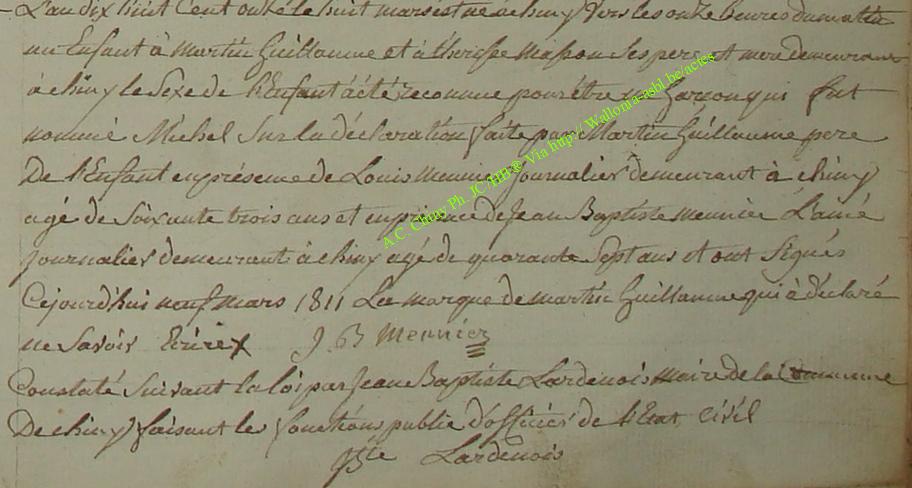 L'an dix huit Cent onke le huit mars est né à chiny vers les onke heures du matin
un Enfant à martin Guillaume et à therese masson Ses pere et mere demeurant
à chiny le Sexe de l'Enfant à été reconnue pour être un Garcon qui fut
nommé Michel Sur la déclaration faite par Martin Guillaume pere
De l'Enfant en présence de Louis meunier journalier demeurant à chiny
agé de Soixante trois ans et en présence de Jean Baptiste meunier L'ainé
journalier demeurant à chiny agé de quarante Sept ans et ont Signés
Cejourd'hui neuf mars 1811 La marque de martin Guillaume qui à déclaré
ne Savoir Ecrire X J B Meunier
Constaté Suivant la loi par Jean Baptiste Lardenois maire de la Commune
De chiny faisant les fonctions public d'officier de l'Etat Civil
JBte Lardenois
A.C. Chiny Ph. JC/HB® Via http// Wallonia-asbl.be/actes